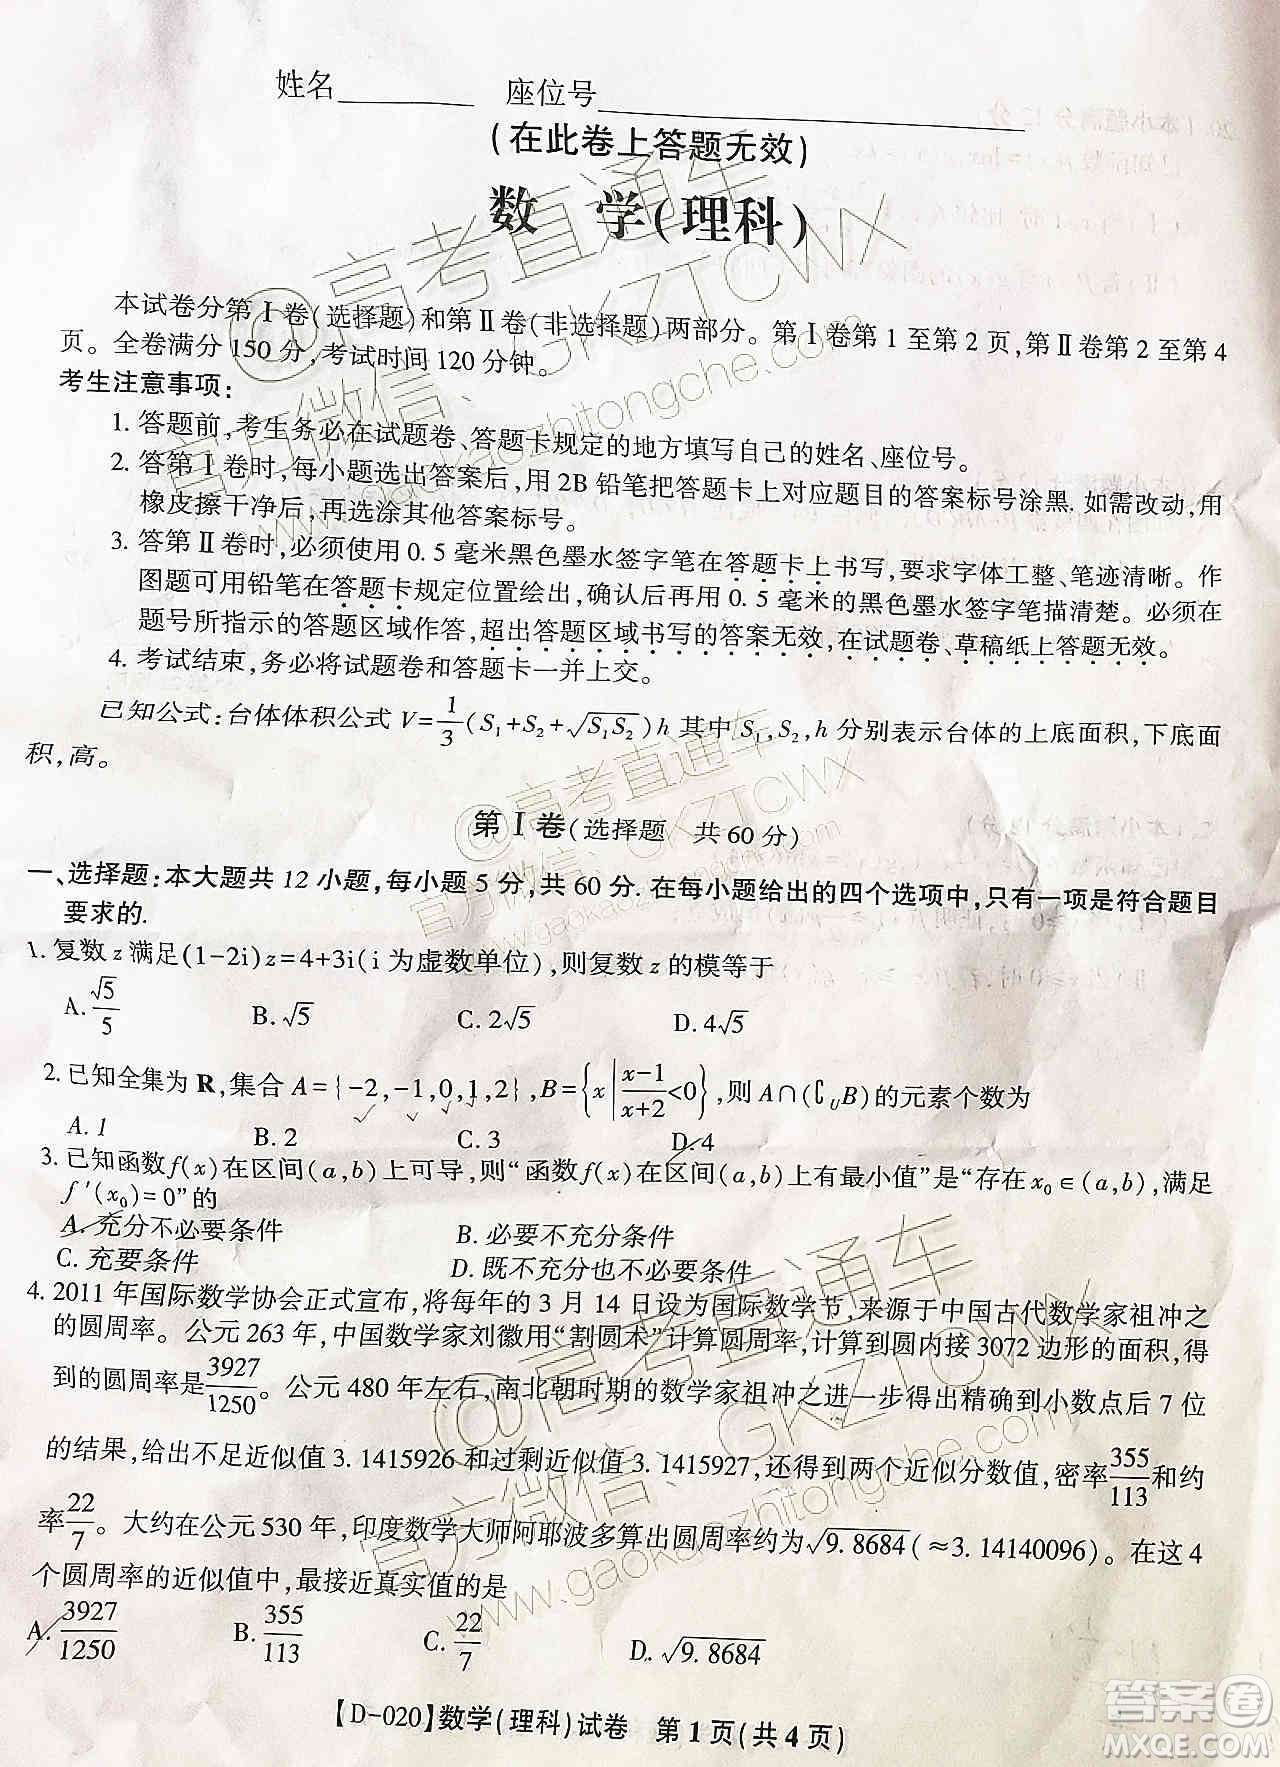 姓名________ 座位号________________
(在此卷上答题无效)
数 学(理科)
本试卷分第Ⅰ卷(选择题)和第Ⅱ卷(非选择题)两部分。第Ⅰ卷第 1 至第 2 页,第Ⅱ卷第 2 至第 4
页。全卷满分 150 分,考试时间 120 分钟。
考生注意事项:
1. 答题前,考生务必在试题卷、答题卡规定的地方填写自己的姓名、座位号。
2. 答第Ⅰ卷时,每小题选出答案后,用 2B 铅笔把答题卡上对应题目的答案标号涂黑. 如需改动,用
橡皮擦干净后,再选涂其他答案标号。
3. 答第Ⅱ卷时,必须使用 0.5 毫米黑色墨水签字笔在答题卡上书写,要求字体工整、笔迹清晰。作
图题可用铅笔在答题卡规定位置绘出,确认后再用 0.5 毫米的黑色墨水签字笔描清楚。必须在
题号所指示的答题区域作答,超出答题区域书写的答案无效,在试题卷、草稿纸上答题无效。
4. 考试结束,务必将试题卷和答题卡一并上交。
已知公式:台体体积公式 V=1/3(S₁+S₂+√(S₁S₂))h 其中 S₁,S₂,h 分别表示台体的上底面积,下底面
积,高。
第Ⅰ卷(选择题 共 60 分)
一、选择题:本大题共 12 小题,每小题 5 分,共 60 分. 在每小题给出的四个选项中,只有一项是符合题目
要求的.
1. 复数 z 满足(1-2i)z=4+3i(i 为虚数单位),则复数 z 的模等于
A. √5/5 B. √5 C. 2√5 D. 4√5
2. 已知全集为 R,集合 A={-2,-1,0,1,2},B={x|(x-1)/(x+2)<0},则 A∩(∁UB)的元素个数为
A. 1 B. 2 C. 3 D. 4
3. 已知函数f(x)在区间(a,b)上可导,则“函数f(x)在区间(a,b)上有最小值”是“存在 x₀∈(a,b),满足
f′(x₀)=0”的
A. 充分不必要条件 B. 必要不充分条件
C. 充要条件 D. 既不充分也不必要条件
4. 2011 年国际数学协会正式宣布,将每年的 3 月 14 日设为国际数学节,来源于中国古代数学家祖冲之
的圆周率。公元 263 年,中国数学家刘徽用“割圆术”计算圆周率,计算到圆内接 3072 边形的面积,得
到的圆周率是3927/1250。公元 480 年左右,南北朝时期的数学家祖冲之进一步得出精确到小数点后 7 位
的结果,给出不足近似值 3.1415926 和过剩近似值 3.1415927,还得到两个近似分数值,密率355/113和约
率22/7。大约在公元 530 年,印度数学大师阿耶波多算出圆周率约为√9.8684(≈3.14140096)。在这 4
个圆周率的近似值中,最接近真实值的是
A. 3927/1250 B. 355/113 C. 22/7 D. √9.8684
【D-020】数学(理科)试卷 第 1 页(共 4 页)
@高考直通车
官方微信:GKZTCWX
www.gaokaozhitongche.com
@高考直通车
官方微信:GKZTCWX
www.gaokaozhitongche.com
@高考直通车
官方微信:GKZTCWX
www.gaokaozhitongche.com
答案圈
MXQE.COM